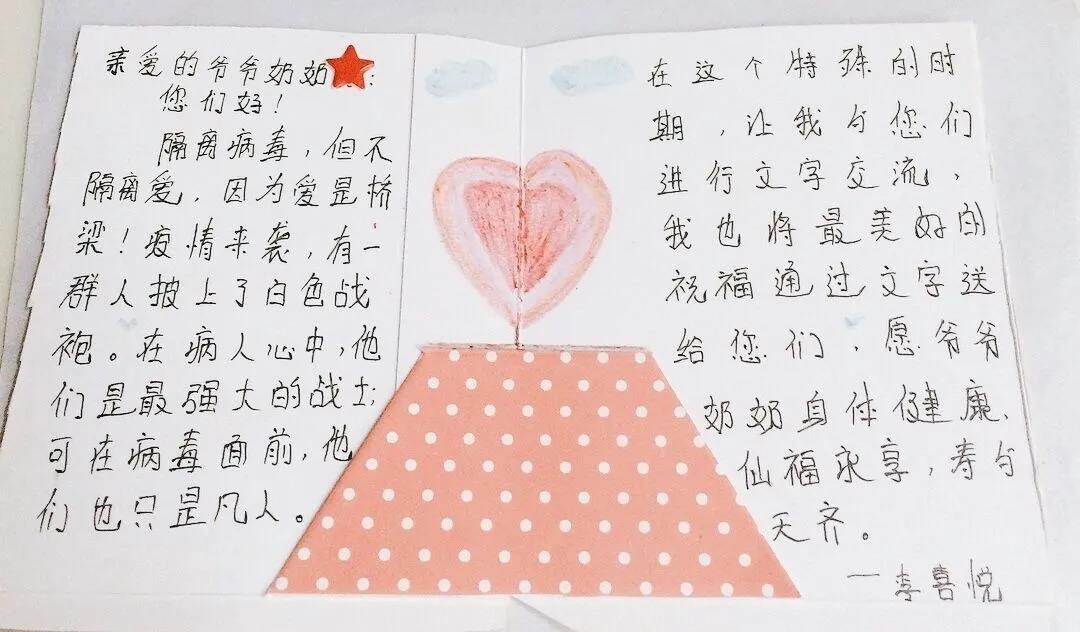 亲爱的爷爷奶奶：
您们好！
隔离病毒，但不
隔离爱，因为爱是桥
梁！疫情来袭，有一
群人披上了白色战
袍。在病人心中，他
们是最强大的战士；
可在病毒面前，他
们也只是凡人。
在这个特殊的时
期，让我与您们
进行文字交流，
我也将最美好的
祝福通过文字送
给您们，愿爷爷
奶奶身体健康、
仙福永享，寿与
天齐。
—李喜悦